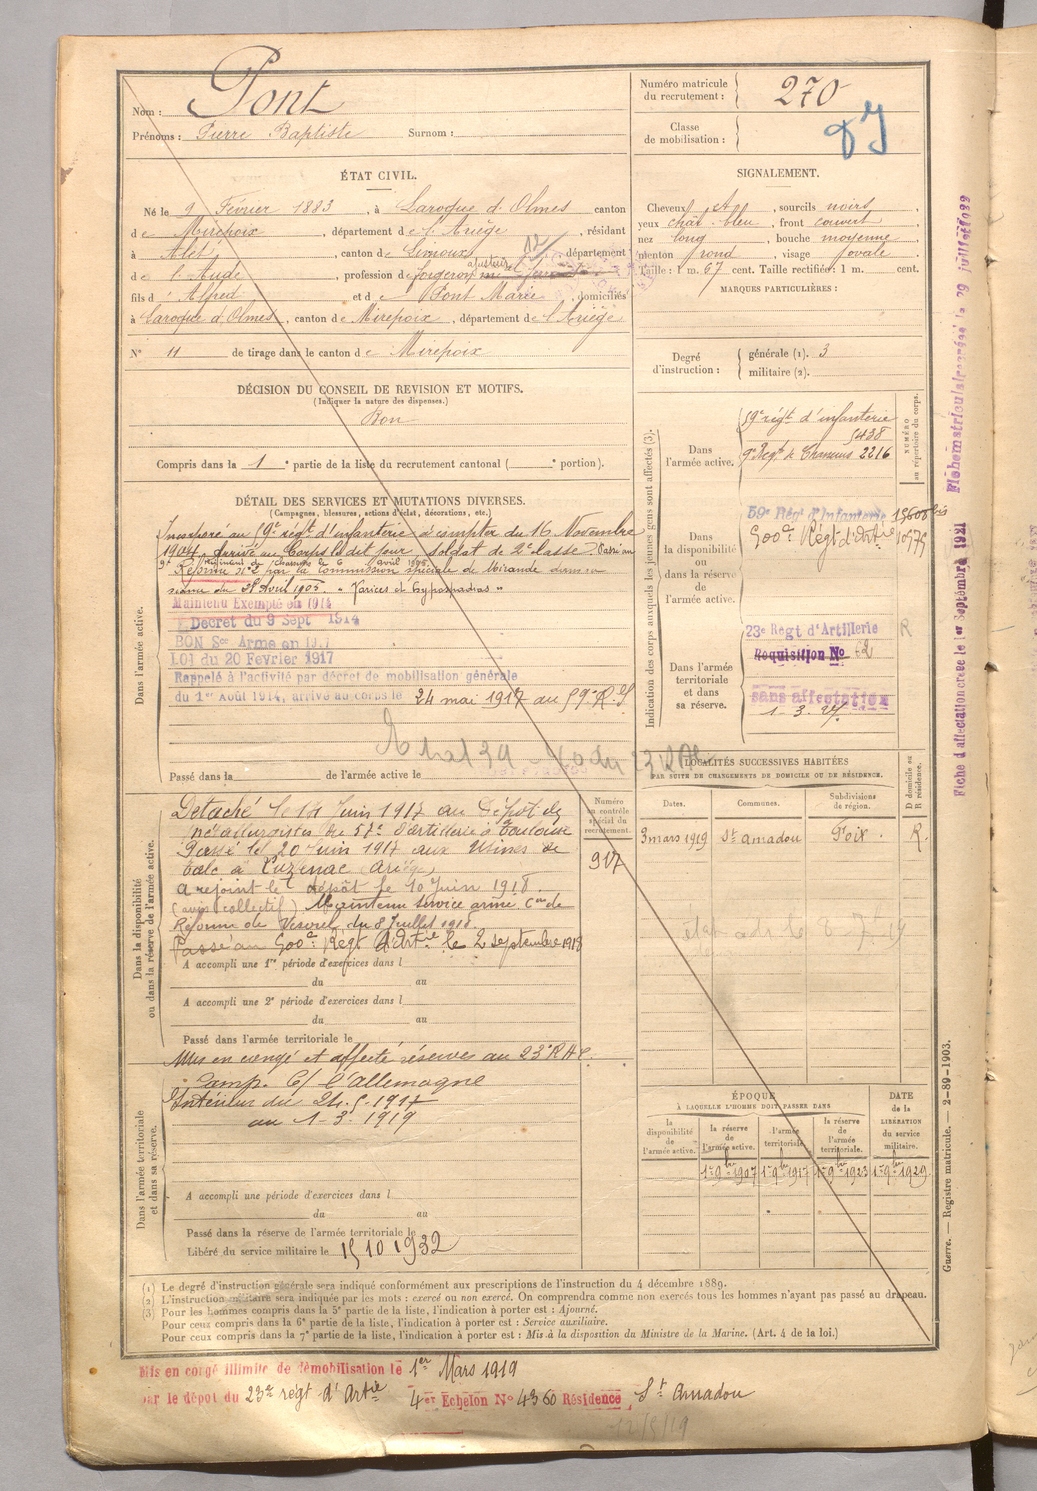 Nom : Pont
Prénoms : Pierre Baptiste Surnom :
Numéro matricule du recrutement : 270
Classe de mobilisation :
ÉTAT CIVIL.
Né le 9 Février 1883, à Laroque d'Olmes canton
de Mirepoix, département de l'Ariège, résidant
à Alet, canton de Limoux, département
de l'Aude, profession de forgeron ajusteur
fils d'Alfred et de Pont Marie, domiciliés
à Laroque d'Olmes, canton de Mirepoix, département de l'Ariège
N° 11 de tirage dans le canton de Mirepoix
SIGNALEMENT.
Cheveux, sourcils noirs,
yeux chât. bleu, front couvert
nez long, bouche moyenne
menton rond, visage ovale
Taille : 1 m. 67 cent. Taille rectifiée : 1 m. cent.
MARQUES PARTICULIÈRES :
Degré d'instruction : générale (1). 3
militaire (2).
DÉCISION DU CONSEIL DE REVISION ET MOTIFS.
(Indiquer la nature des dispenses.)
Bon
Compris dans la 1e partie de la liste du recrutement cantonal ( e portion).
DÉTAIL DES SERVICES ET MUTATIONS DIVERSES.
(Campagnes, blessures, actions d'éclat, décorations, etc.)
Dans l'armée active.
Incorporé au 59e régt d'infanterie à compter du 16 Novembre
1904. Arrivé au Corps le dit jour, soldat de 2e classe. Passé au
9e Régiment de Chasseurs le 6 Avril 1905.
Réformé N° 2 par la Commission spéciale de Mirande dans sa
séance du 28 Avril 1905.
Maintenu Exempté en 1914
Décret du 9 Sept 1914
BON Sce Armé en 1917
LOI du 20 Février 1917
Rappelé à l'activité par décret de mobilisation générale
du 1er Août 1914, arrivé au corps le 24 mai 1917 au 59e R.I
Passé dans la de l'armée active le
Indication des corps auxquels les jeunes gens sont affectés (3).
NUMÉRO au répertoire du corps.
Dans l'armée active.
59e régt d'infanterie
5438
9e Régt de Chasseurs 2216
Dans la disponibilité ou dans la réserve de l'armée active.
59e Rég d'Infanterie 15608 bis
500e Régt d'Artie 10575
Dans l'armée territoriale et dans sa réserve.
23e Régt d'Artillerie R
Requisition N° 62
sans affectation
1-3-27
LOCALITÉS SUCCESSIVES HABITÉES
PAR SUITE DE CHANGEMENTS DE DOMICILE OU DE RÉSIDENCE.
Dates. Communes. Subdivisions de région. D domicile ou R résidence.
3 mars 1919 St Amadou Foix R.
Dans la disponibilité ou dans la réserve de l'armée active.
Numéro au contrôle spécial du recrutement.
917
Détaché le 14 Juin 1917 au Dépôt de
métallurgistes du 57e d'artillerie à Toulouse
Passé le 20 Juin 1917 aux Usines de
talc à Luzenac (Ariège)
a rejoint le dépôt le 10 Juin 1918.
(avis collectif) Maintenu service armé Con de
Réforme de Vesoul du 8 Juillet 1918.
Passé au 500e Régt d'Artie le 2 septembre 1918
A accompli une 1re période d'exercices dans l
du au
A accompli une 2e période d'exercices dans l
du au
Passé dans l'armée territoriale le
Mis en congé et affecté réserves au 23e RAC.
Dans l'armée territoriale et dans sa réserve.
Camp. C/ l'Allemagne
Intérieur du 24.5.1917
au 1-3-1919
A accompli une période d'exercices dans l
du au
Passé dans la réserve de l'armée territoriale le
Libéré du service militaire le 15 10 1932
ÉPOQUE
À LAQUELLE L'HOMME DOIT PASSER DANS
la disponibilité de l'armée active. la réserve de l'armée active. l'armée territoriale. la réserve de l'armée territoriale.
DATE de la LIBÉRATION du service militaire.
1er 9bre 1907 1er 9bre 1917 1er 9bre 1923 1er 9bre 1929
(1) Le degré d'instruction générale sera indiqué conformément aux prescriptions de l'instruction du 4 décembre 1889.
(2) L'instruction militaire sera indiquée par les mots : exercé ou non exercé. On comprendra comme non exercés tous les hommes n'ayant pas passé au drapeau.
(3) Pour les hommes compris dans la 5e partie de la liste, l'indication à porter est : Ajourné.
Pour ceux compris dans la 6e partie de la liste, l'indication à porter est : Service auxiliaire.
Pour ceux compris dans la 7e partie de la liste, l'indication à porter est : Mis à la disposition du Ministre de la Marine. (Art. 4 de la loi.)
Mis en congé illimité de démobilisation le 1er Mars 1919
par le dépôt du 23e régt d'Artie 4er Echelon N° 4360 Résidence St Amadou
12/5/19
Guerre. — Registre matricule. — 2-89-1903.
Fiche d'affectation créée le 1er Septembre 1921